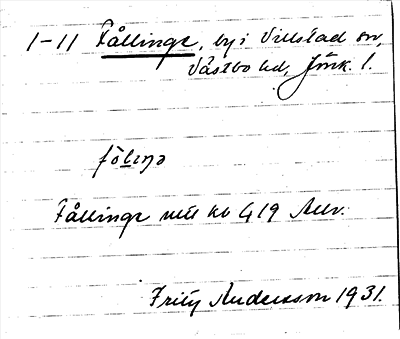 1-11 Fållinge, by i Villstad sn,
Västbo hd, Jönk. l.
fö̀liŋə
Fållinge
Fritz Andersson 1931.